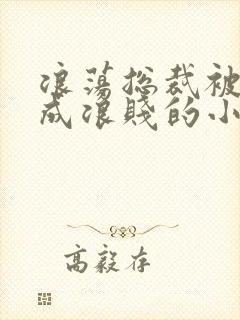 浪荡总裁被
成浪贱的小
高毅存